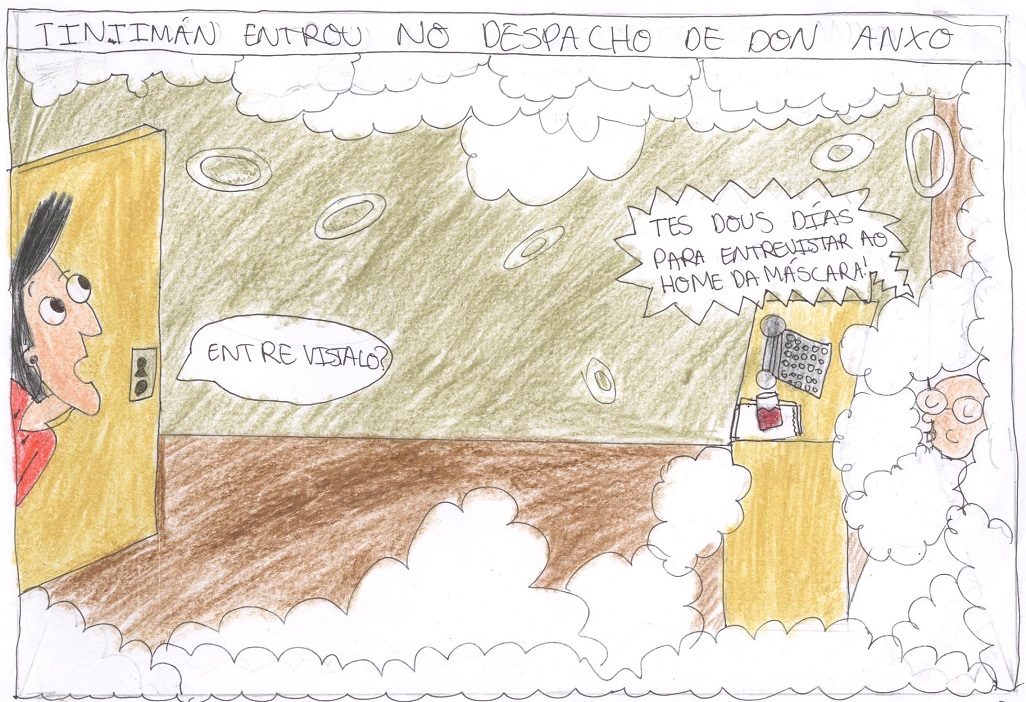 TINTIMÁN ENTROU NO DESPACHO DE DON ANXO
ENTREVISTALO?
TES DOUS DÍAS
PARA ENTREVISTAR AO
HOME DA MÁSCARA!